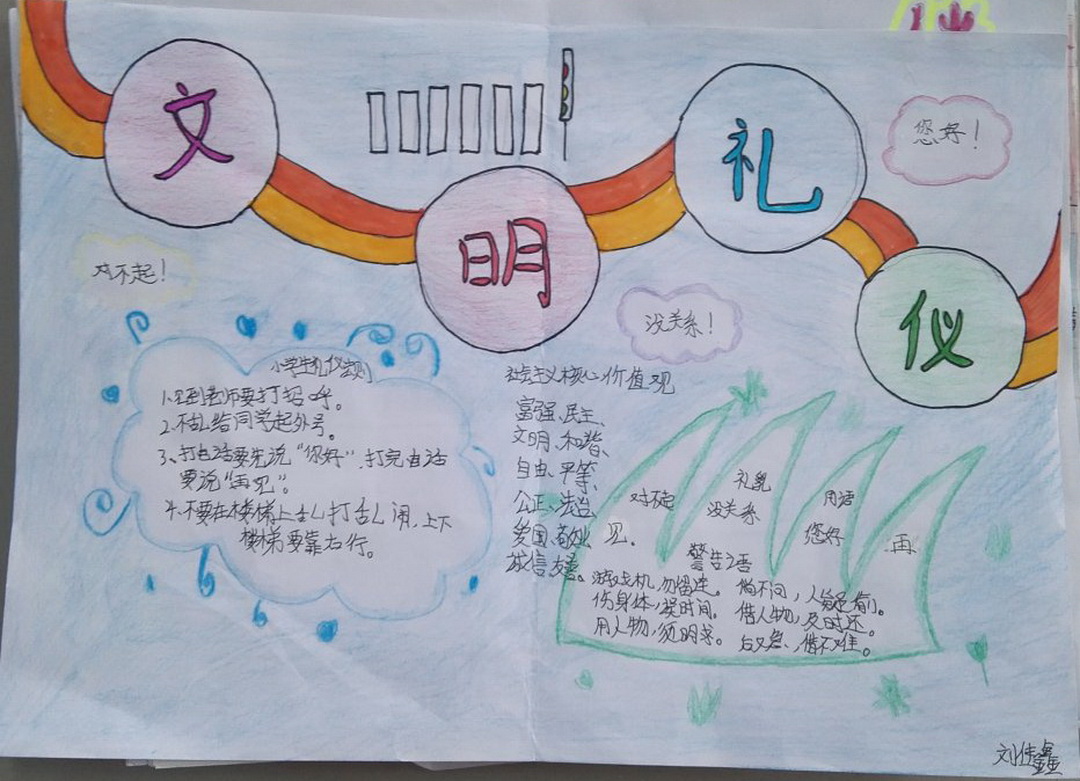 文明礼仪
您好！
对不起！
没关系！
小学生礼仪准则
1.见到老师要打招呼。
2.不乱给同学起外号。
3、打电话要先说“你好”.打完电话
要说“再见”。
4.不要在楼梯上乱打乱闹，上下
楼梯要靠右行。
社会主义核心价值观
富强、民主、
文明、和谐、
自由、平等、
公正、法治
爱国、敬业
诚信友善。
礼貌 用语
对不起 没关系 您好 .再
见.
警告之语
游戏机，勿留连。
伤身体，误时间。
用人物，须明求。
倘不问，人疑是偷。
借人物，及时还。
后又急，借不难。
刘佳鑫